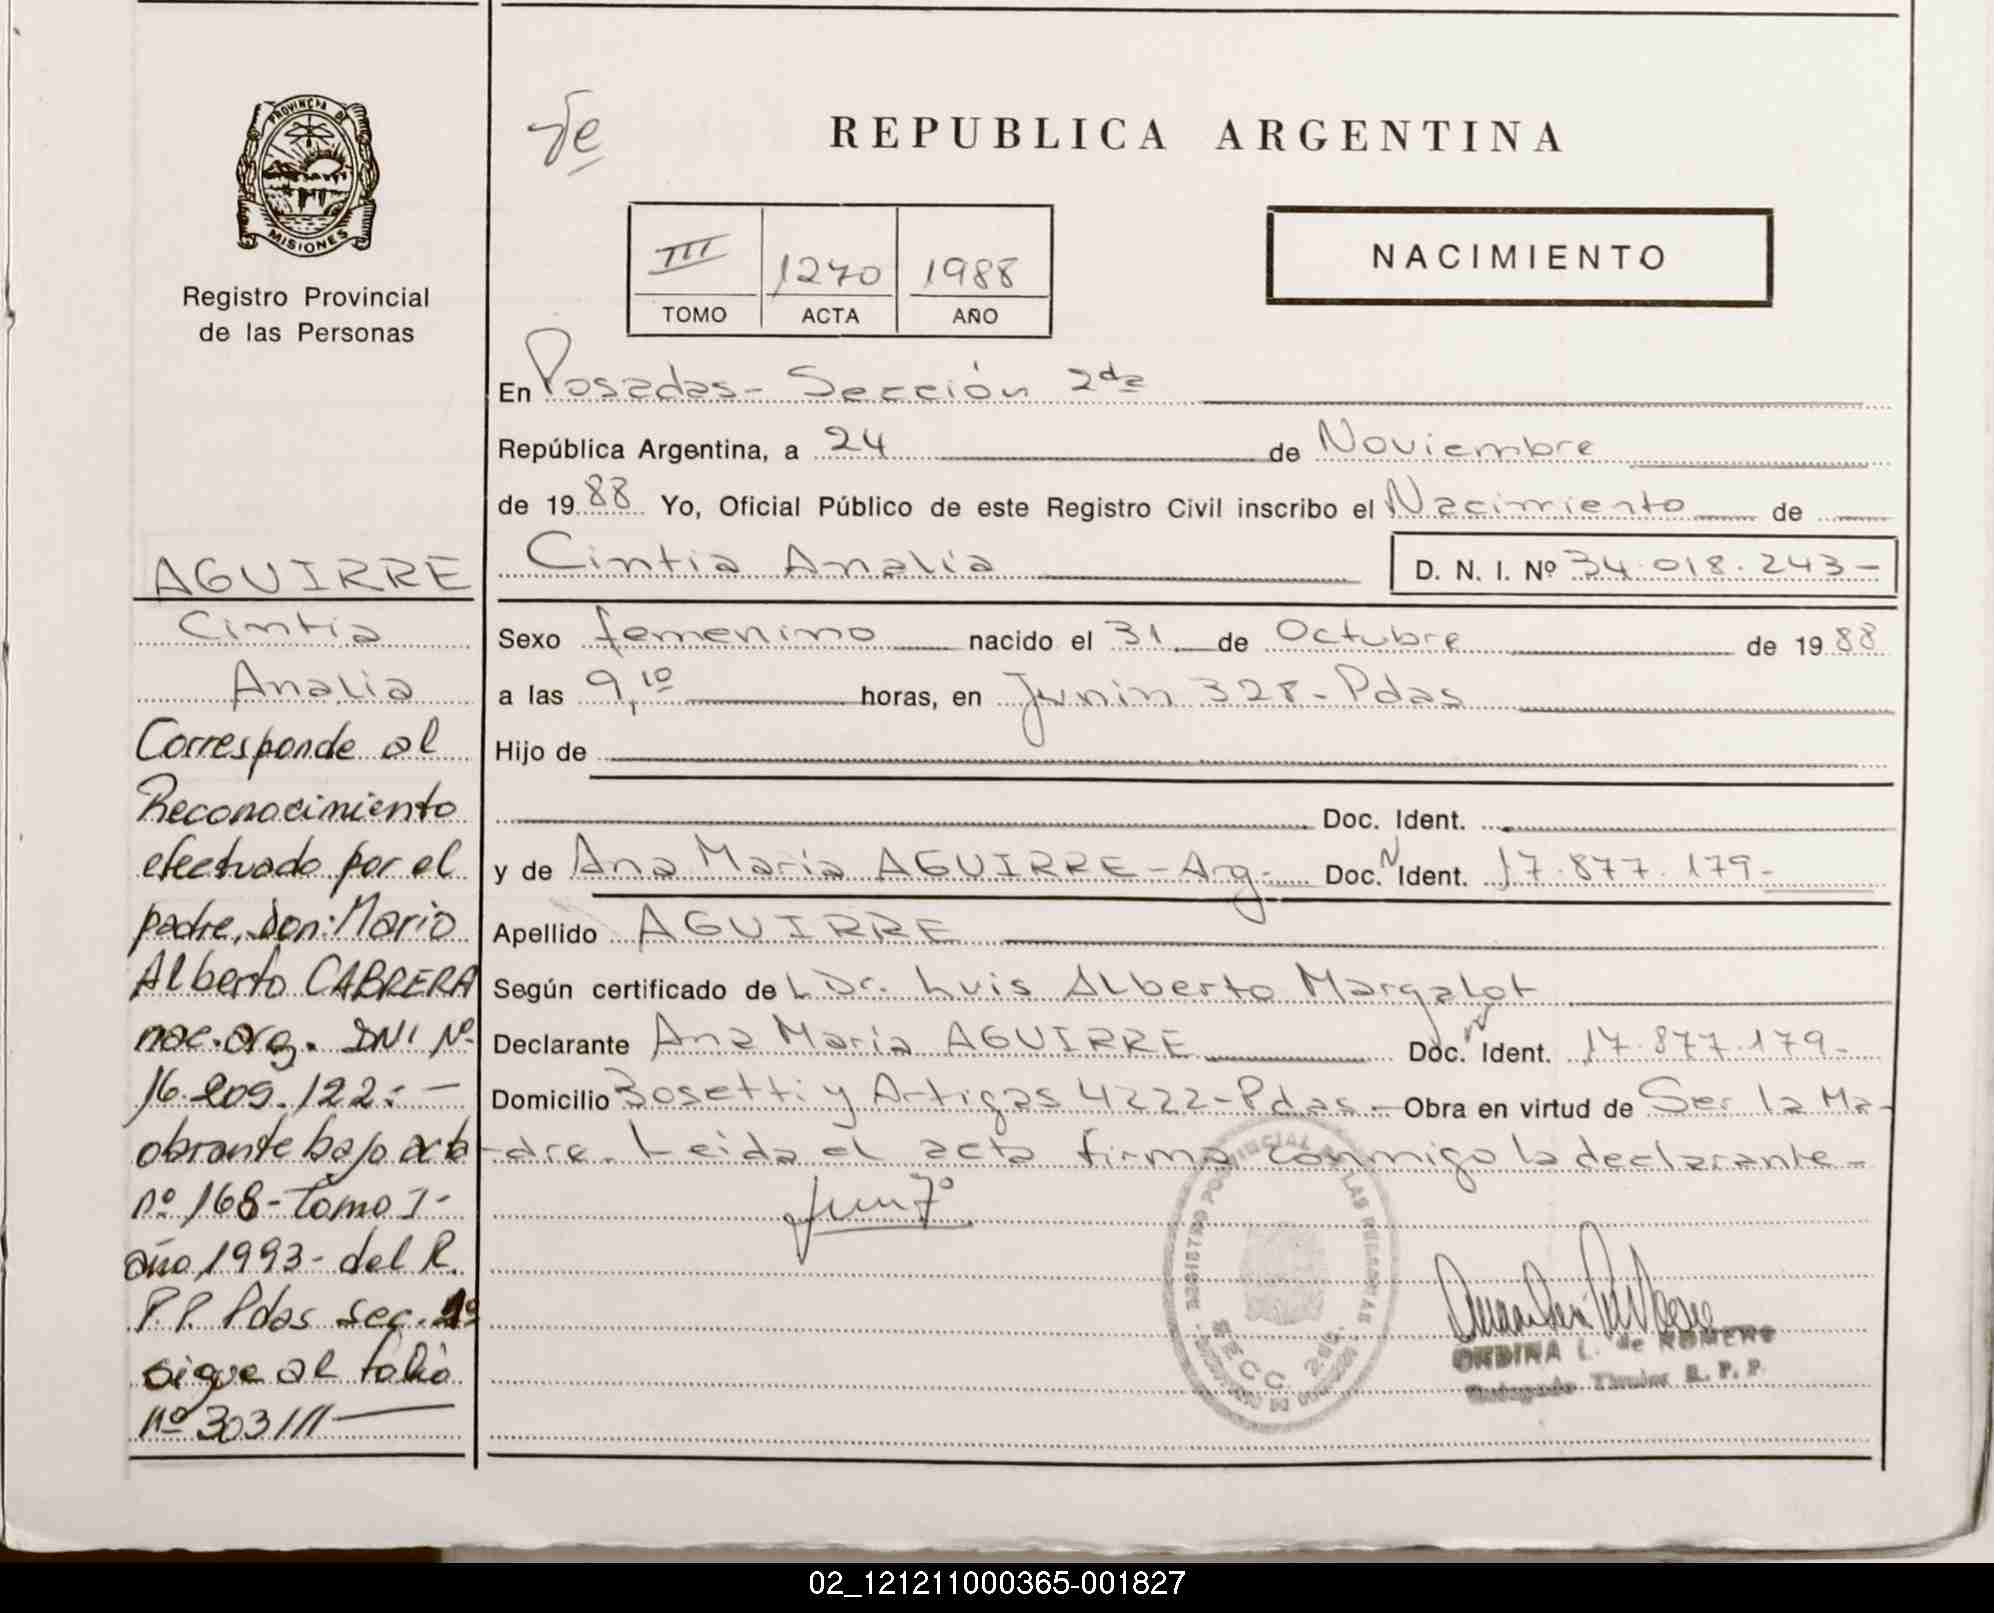 PROVINCIA DE
MISIONES
Registro Provincial
de las Personas
AGUIRRE
Cintia
Analia
Corresponde al
Reconocimiento
efectuado por el
padre, Don: Mario
Alberto CABRERA
nac. arg. DNI Nº
16.209.122: —
obrante bajo acta
nº 168 - Tomo I -
año 1993 - del R.
P.P. Pdas sec. 1º
sigue al folio
nº 303///
REPUBLICA ARGENTINA
III 1270 1988
TOMO ACTA AÑO
NACIMIENTO
En Posadas - Sección 2da
República Argentina, a 24 de Noviembre
de 1988 Yo, Oficial Público de este Registro Civil inscribo el Nacimiento de
Cintia Analía D. N. I. Nº 34.018.243 -
Sexo femenino nacido el 31 de Octubre de 1988
a las 9,10 horas, en Junin 328 - Pdas
Hijo de
Doc. Ident.
y de Ana María AGUIRRE - Arg - Doc. N Ident. 17.877.179 -
Apellido AGUIRRE
Según certificado de L Dr. Luis Alberto Margalot
Declarante Ana María AGUIRRE Doc. N Ident. 17.877.179 -
Domicilio Bosetti y Artigas 4222 - Pdas - Obra en virtud de Ser la Ma-
-dre. Leida el acta firma conmigo la declarante -
REGISTRO PROVINCIAL DE LAS PERSONAS
SECC. 2da.
ONDINA L. de ROMERO
Delegada Titular R. P. P.
02_121211000365-001827